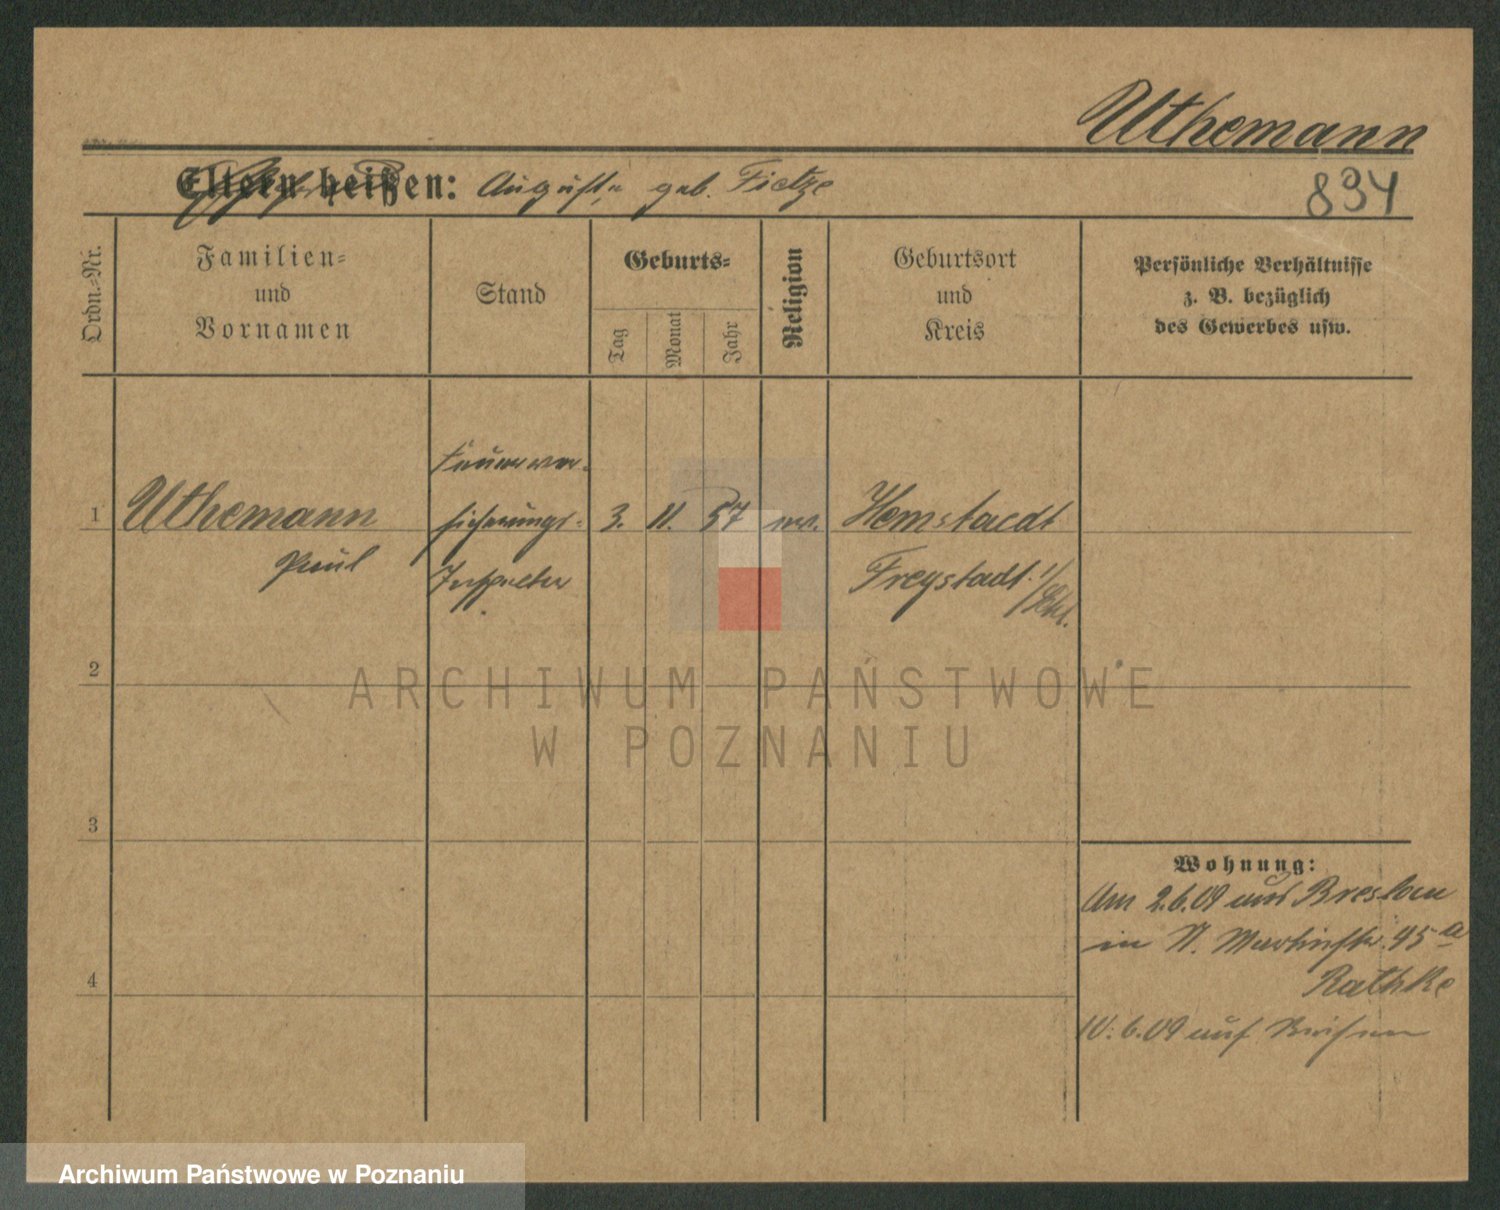 Uthemann
834
Eltern heißen: Auguste geb. Fietze
Ordn.-Nr.
Familien- und Vornamen
Stand
Geburts-
Tag
Monat
Jahr
Religion
Geburtsort und Kreis
Persönliche Verhältnisse
z. B. bezüglich
des Gewerbes usw.
1
Uthemann
Paul
Feuerver-
sicherungs-
Inspektor
3. 11. 57
Freystadt
2
3
4
Wohnung:
Am 2.6.09 aus Breslau
in St. Martinstr. 45a
Rathke
10.6.09 auf Reisen
ARCHIWUM PAŃSTWOWE
W POZNANIU
Archiwum Państwowe w Poznaniu